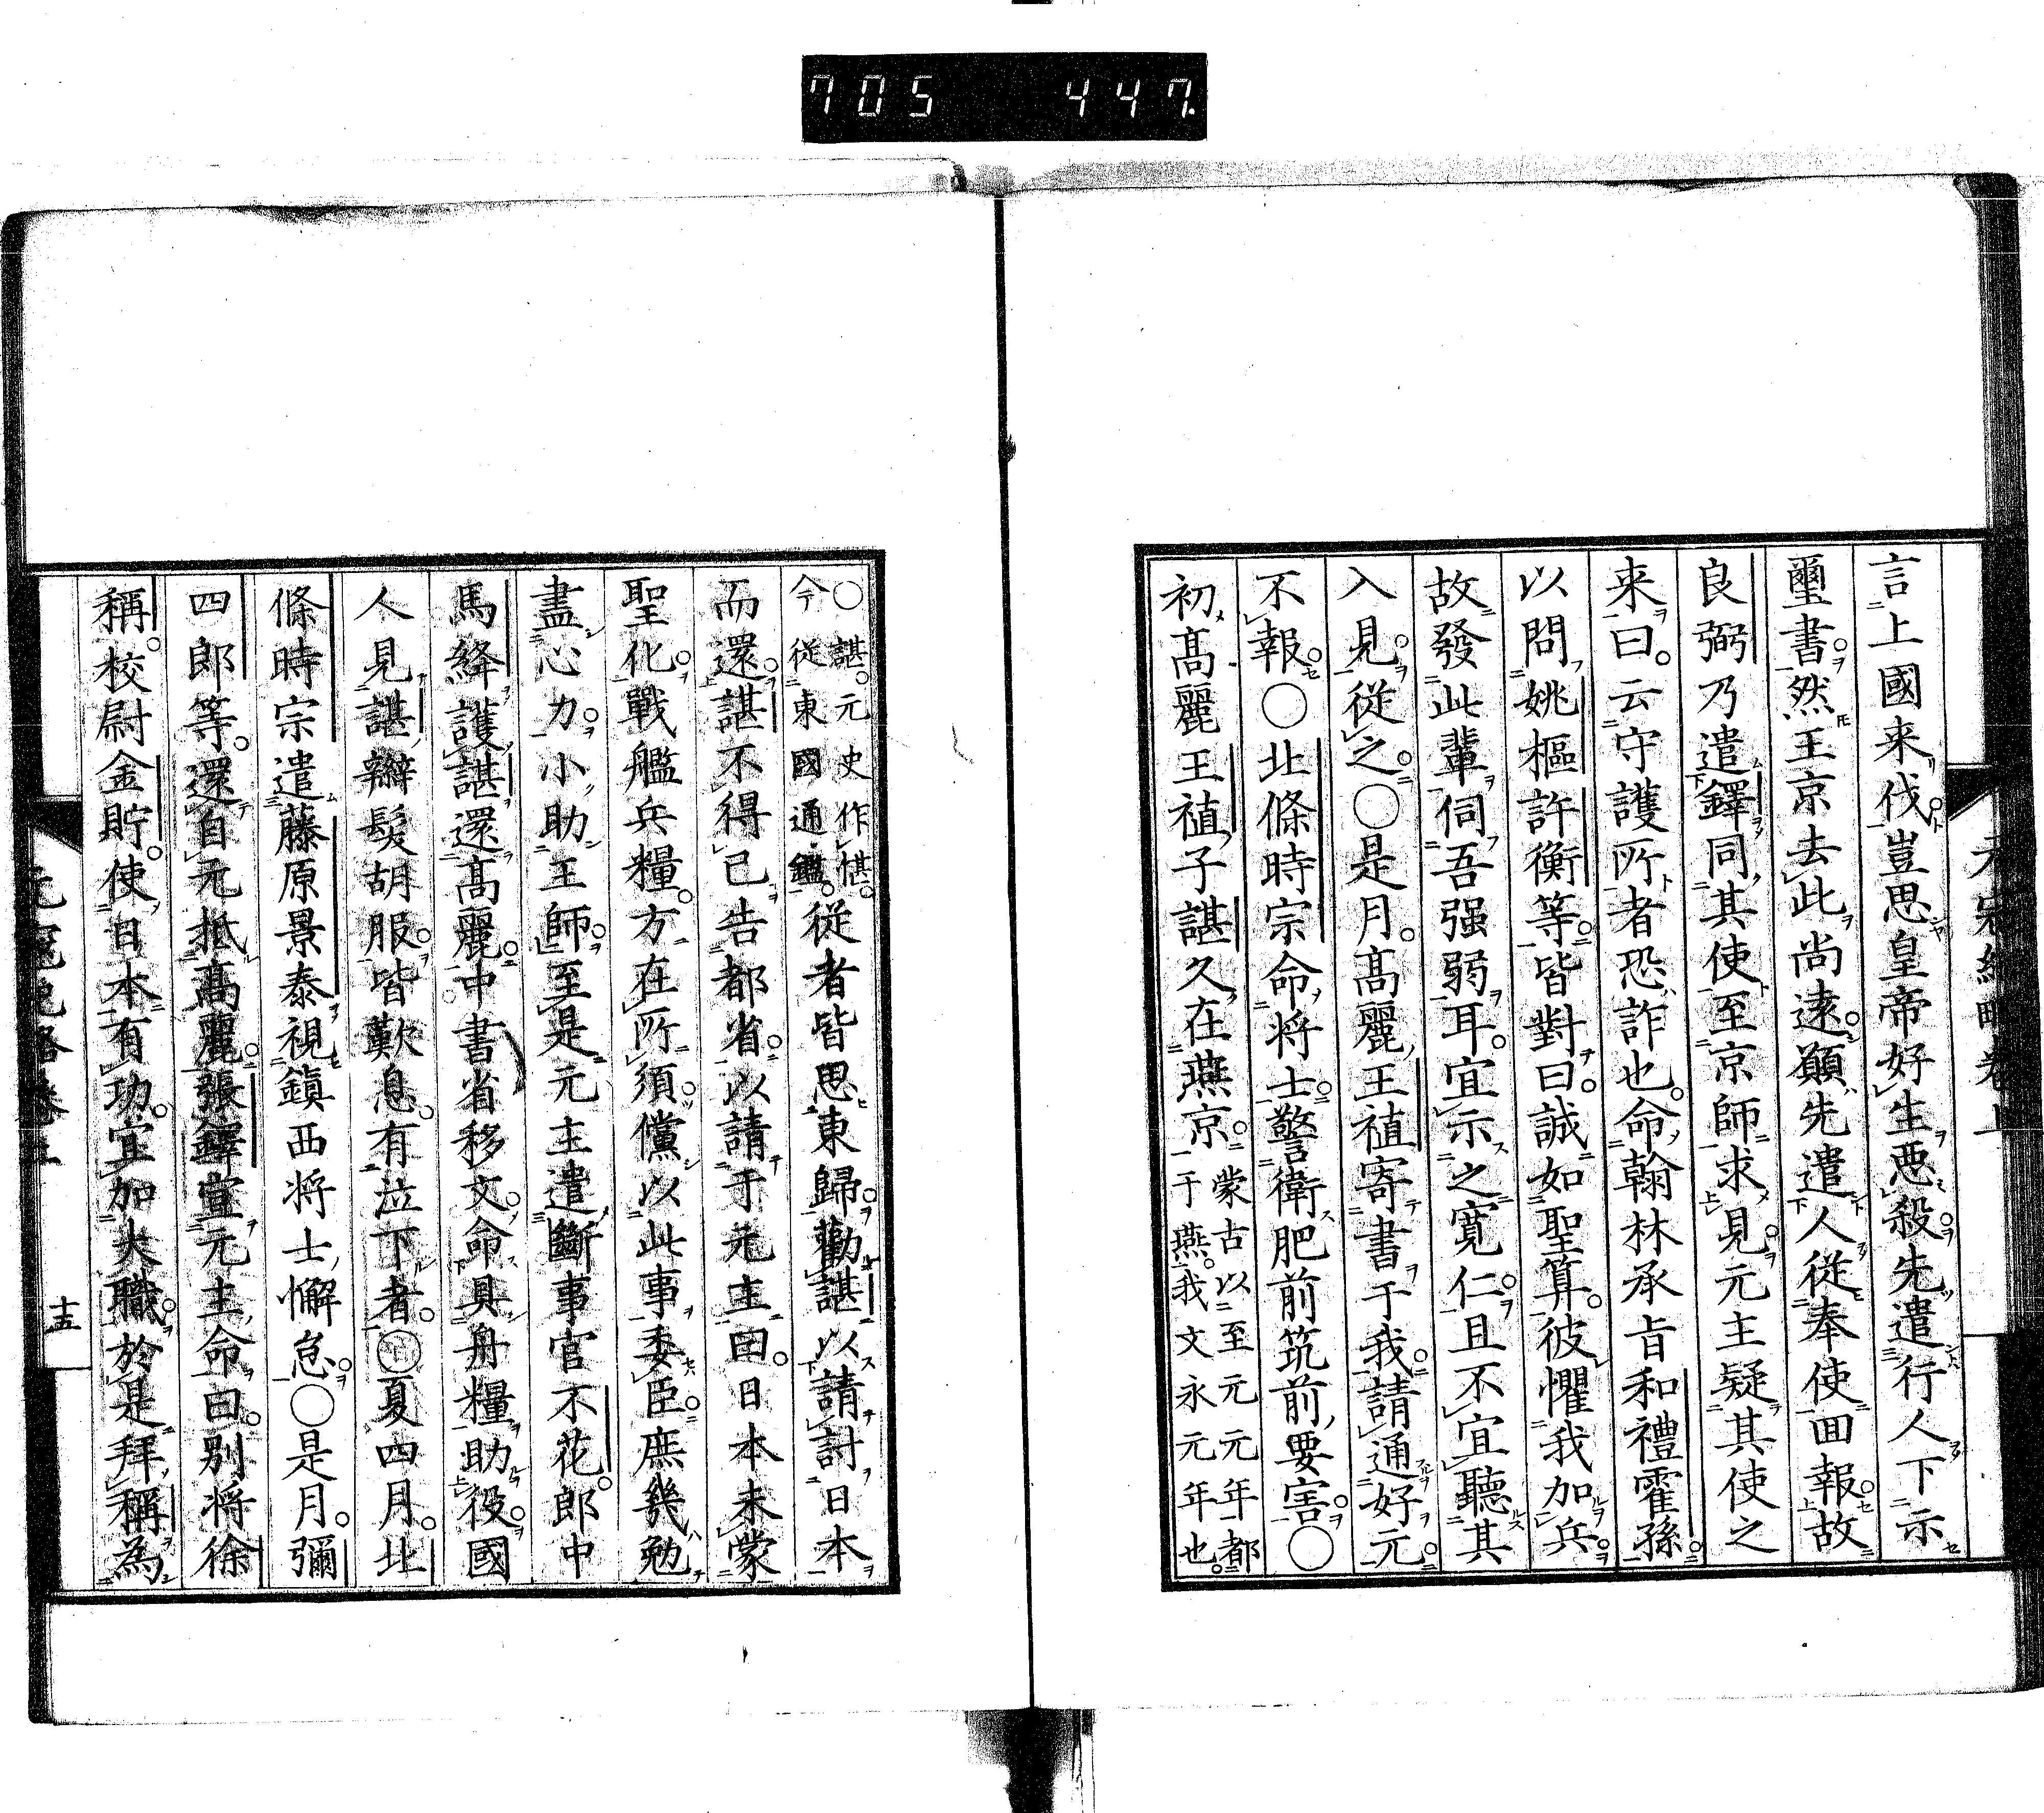 705 447
言上國来伐豈思皇帝好生惡殺先遣行人下示
璽書然王京去此尚遠願先遣人從奉使回報故
良弼乃遣鐸同其使至京師求見元主疑其使之
来曰云守護所者恐詐也命翰林承旨和禮霍孫
以問姚樞許衡等皆對曰誠如聖算彼懼我加兵
故發此輩伺吾强弱耳宜示之寬仁且不宜聽其
入見從之〇是月高麗王禃寄書于我請通好元
不報〇北條時宗命将士警衛肥前筑前要害〇
初高麗王禃子諶久在燕京蒙古以至元元年都于燕我文永元年也
〇諶元史作愖今從東國通鑑從者皆思東歸勸諶以請討日本
而還諶不得已告都省以請于元主曰日本未蒙
聖化戰艦兵糧方在所須儻以此事委臣庶幾勉
盡心力小助王師至是元主遣斷事官不花郎中
馬絳護諶還高麗中書省移文命具舟糧助役國
人見諶辮髮胡服皆歎息有泣下者〇夏四月北
條時宗遣藤原景泰視鎮西将士懈怠〇是月彌
四郎等還自元抵高麗張鐸宣元主命曰别将徐
稱校尉金貯使日本有功宜加大職於是拜稱為
十五